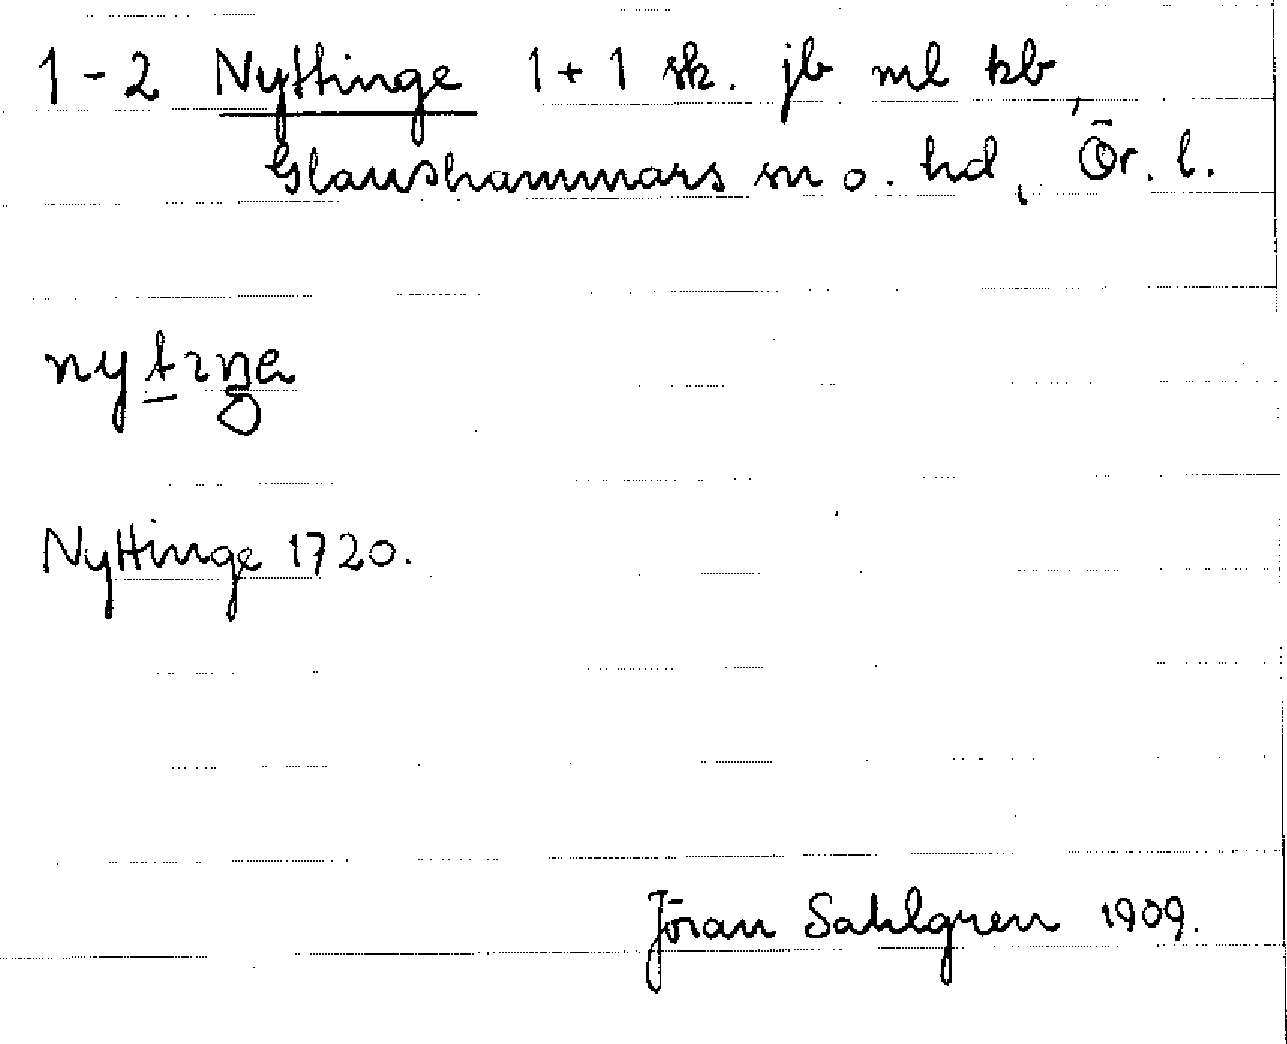 1-2 Nyttinge 1+1 sk. jb ml kb,
Glanshammars sn o. hd, Ör. l.
nytıŋa
Nyttinge 1720.
Jöran Sahlgren 1909.